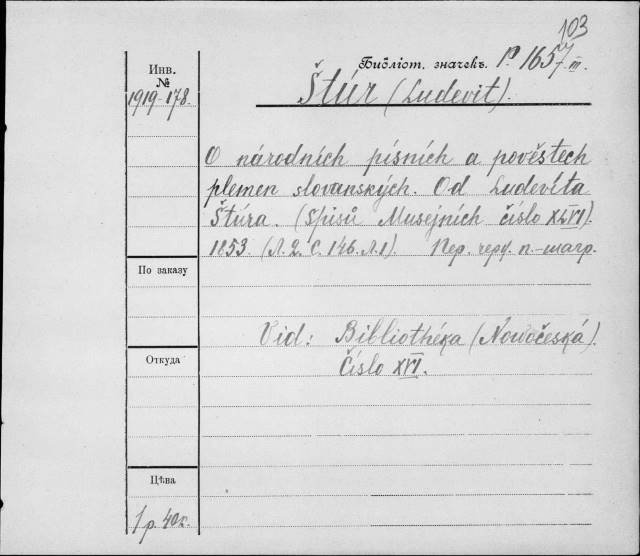 103
Библіот. значекъ. P. 1657 III.
Инв.
№
1919-178.
Štúr (Ludevit).
O národních písních a pověstech
plemen slovanských. Od Ludevíta
Štúra. (Spisů Musejních číslo XLVI).
1853. (Л. 2. С. 146. Л. 1). Пер.
По заказу
Vid: Bibliothéka (Nowočeská).
Číslo XVI.
Откуда
Цѣна
1 р. 40 к.